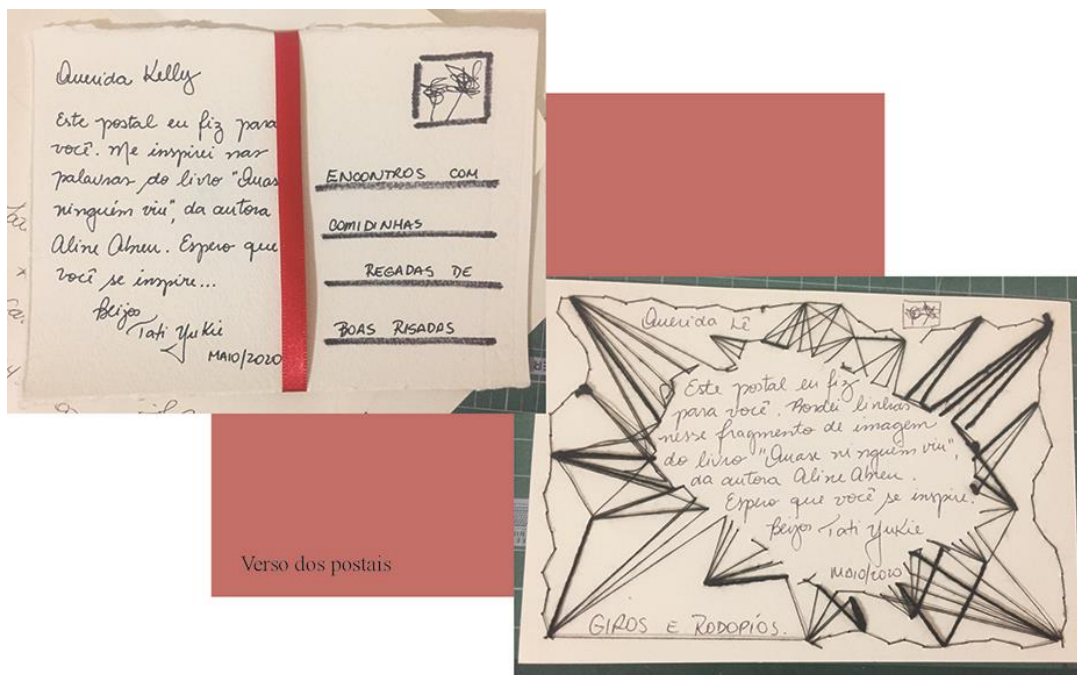 Querida Kelly
Este postal eu fiz para
você. Me inspirei nas
palavras do livro "Quase
ninguém viu", da autora
Aline Abreu. Espero que
você se inspire...
Beijos
Tati Yukie
MAIO/2020
ENCONTROS COM
COMIDINHAS
REGADAS DE
BOAS RISADAS
Verso dos postais
Querida Lê
Este postal eu fiz
para você. Bordei linhas
nesse fragmento de imagem
do livro "Quase ninguém viu",
da autora Aline Abreu.
Espero que você se inspire.
Beijos Tati Yukie
MAIO/2020
GIROS E RODOPIOS.